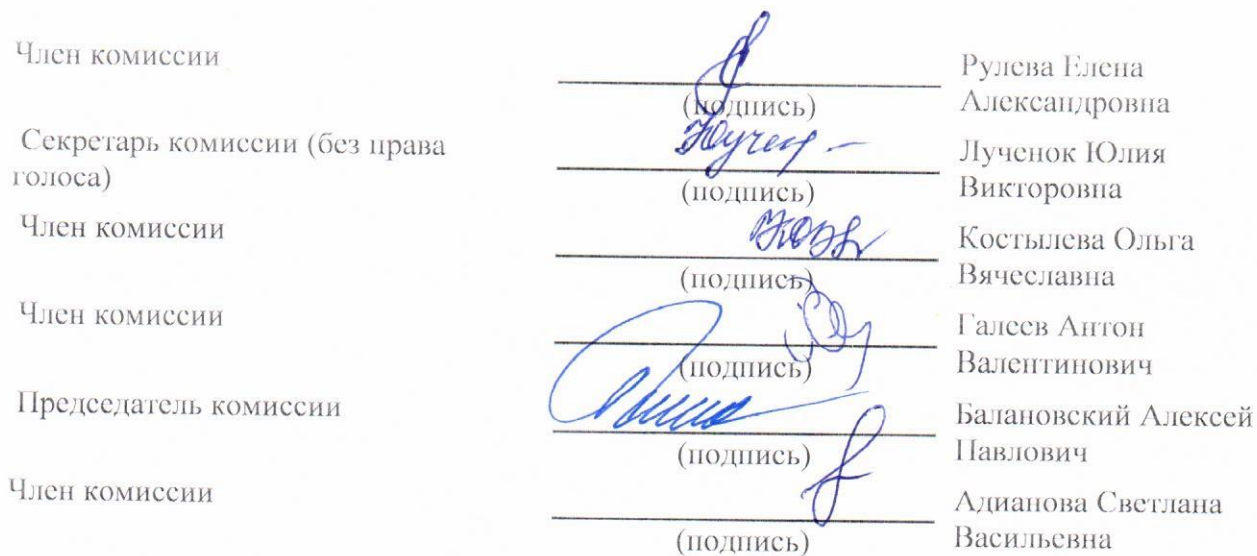 Член комиссии
(подпись)
Рулева Елена
Александровна
Секретарь комиссии (без права
голоса)
(подпись)
Лученок Юлия
Викторовна
Член комиссии
(подпись)
Костылева Ольга
Вячеславна
Член комиссии
(подпись)
Галеев Антон
Валентинович
Председатель комиссии
(подпись)
Балановский Алексей
Павлович
Член комиссии
(подпись)
Адианова Светлана
Васильевна